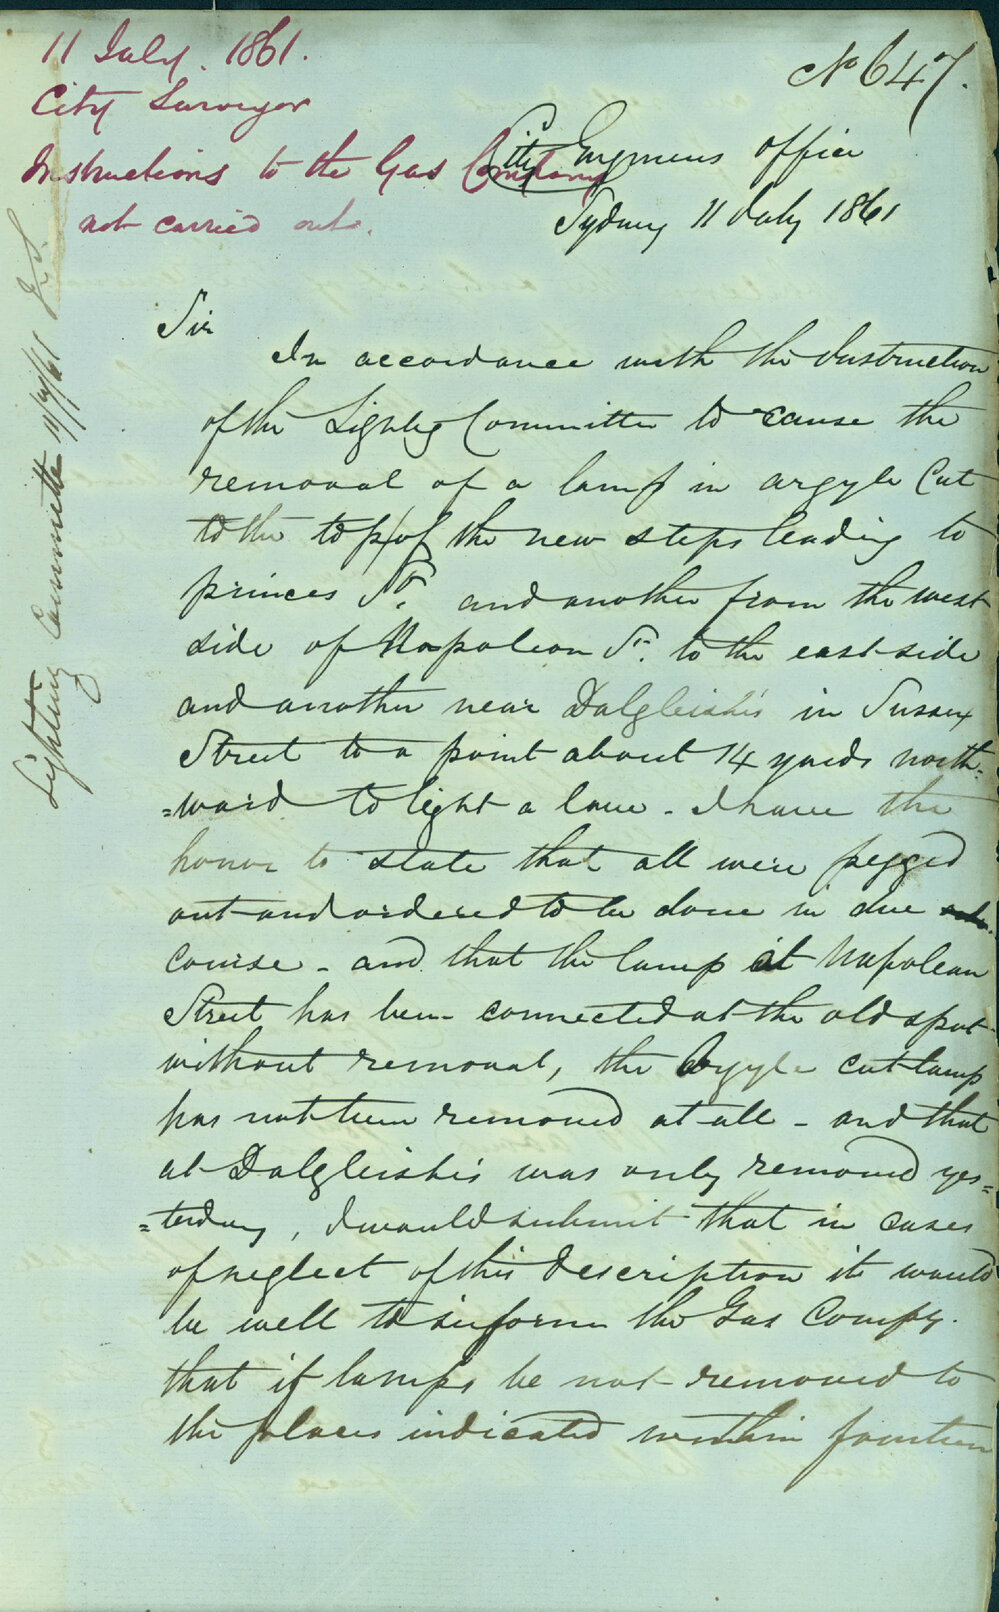 11 July. 1861.
City Surveyor
Instructions to the Gas Company
not carried out.
No 647.
City Engineers office
Sydney 11 July 1861
Lighting Committee 11/7/61
Sir
In accordance with the Instruction
of the Lightg Committee to cause the
removal of a lamp in argyle Cut
to the top of the new steps leading to
princes St. and another from the west
side of Napoleon St. to the east side
and another near Dalgleish's in Sussex
Street to a point about 14 yards north=
=ward to light a lane - I have the
honor to state that all were pegged
out and ordered to be done in due
course - and that the lamp at Napoleon
Street has been connected at the old spot
without removal, the Argyle cut lamp
has not been removed at all - and that
at Dalgleish's was only removed yes=
=terday, I would submit that in cases
of neglect of this description it would
be well to inform the Gas Compy.
that if lamps be not removed to
the places indicated within fourteen